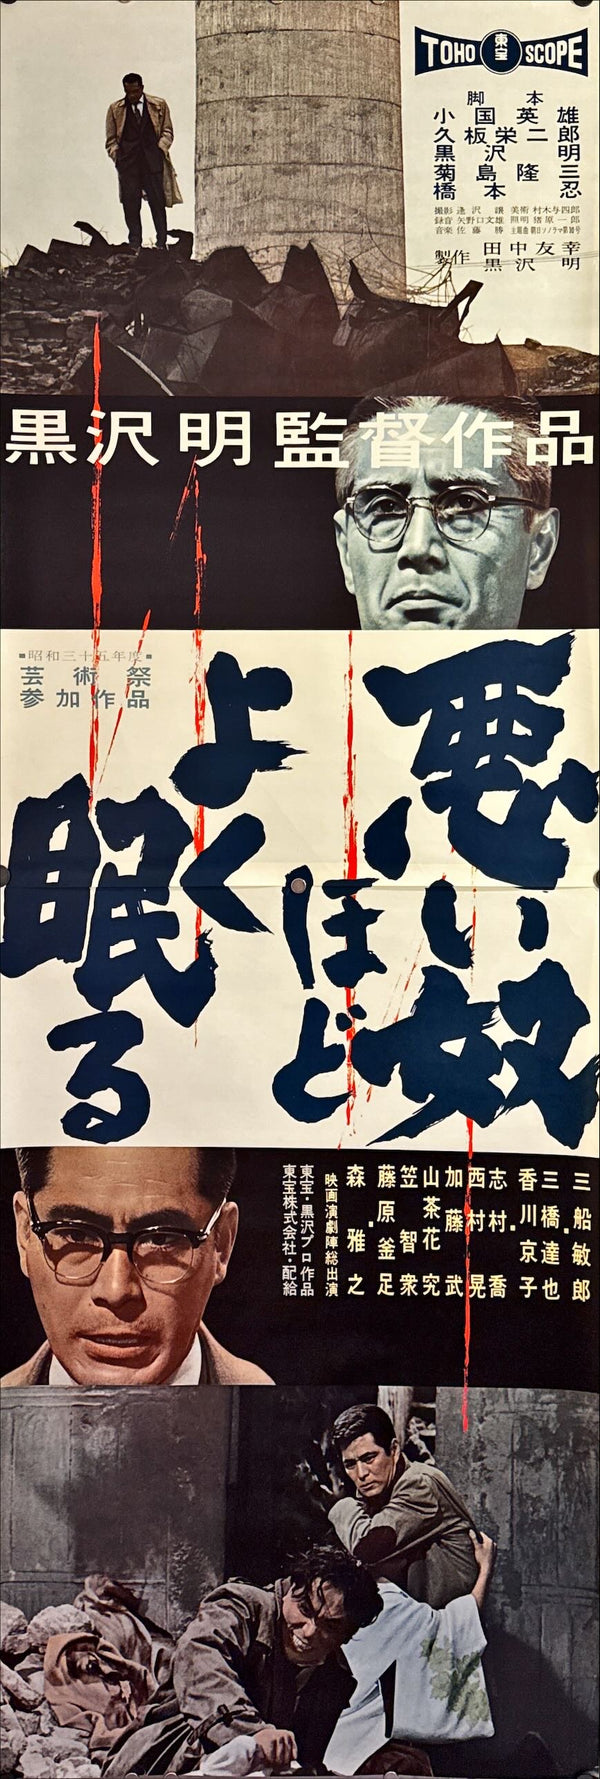 TOHO 東宝 SCOPE
脚本
小国英雄
久板栄二郎
黒沢明
菊島隆三
橋本忍
撮影 逢沢譲 美術 村木与四郎
録音 矢野口文雄 照明 猪原一郎
音楽 佐藤勝 主題曲 朝日ソノラマ第10号
製作 田中友幸
黒沢明
黒沢明監督作品
■昭和三十五年度■
芸術祭
参加作品
悪い奴
ほど
よく
眠る
三船敏郎
三橋達也
香川京子
志村喬
西村晃
加藤武
山茶花究
笠智衆
藤原釜足
森雅之
映画演劇陣総出演
東宝・黒沢プロ作品
東宝株式会社・配給